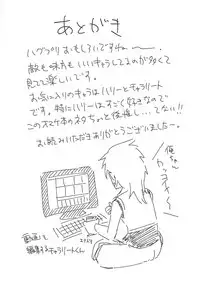 あとがき
ハグプリおもしろいですねー。
敵も味方もいいキャラしてるのが多くて
見てて楽しいです。
お気に入りのキャラはハリーとチャラリート
です。特にハリーはすごく好きなので
このオマケ本のネタちょっと後悔し…てない!!
お読みいただきありがとうございましたー。
俺ちゃん
カッコイイー!
動画を
編集するチャラリートくん